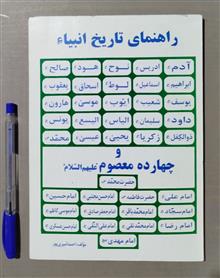 راهنمای تاریخ انبیاء
آدم ادریس نوح هود صالح
ابراهیم اسماعیل لوط اسحاق یعقوب
یوسف شعیب ایّوب موسیٰ هارون
داود سلیمان الیاس الیسع یونس
ذوالکفل زکریّا یحیی عیسی محمّد
و
چهارده معصوم علیهم‌السلام
حضرت محمّد
امام علی حضرت فاطمه امام حسن مجتبی امام حسین
امام سجّاد امام محمّد باقر امام جعفر صادق امام موسی کاظم
امام رضا امام محمّد تقی امام علی النقی امام حسن عسکری
امام مهدی
مؤلف: احمد امیری پور